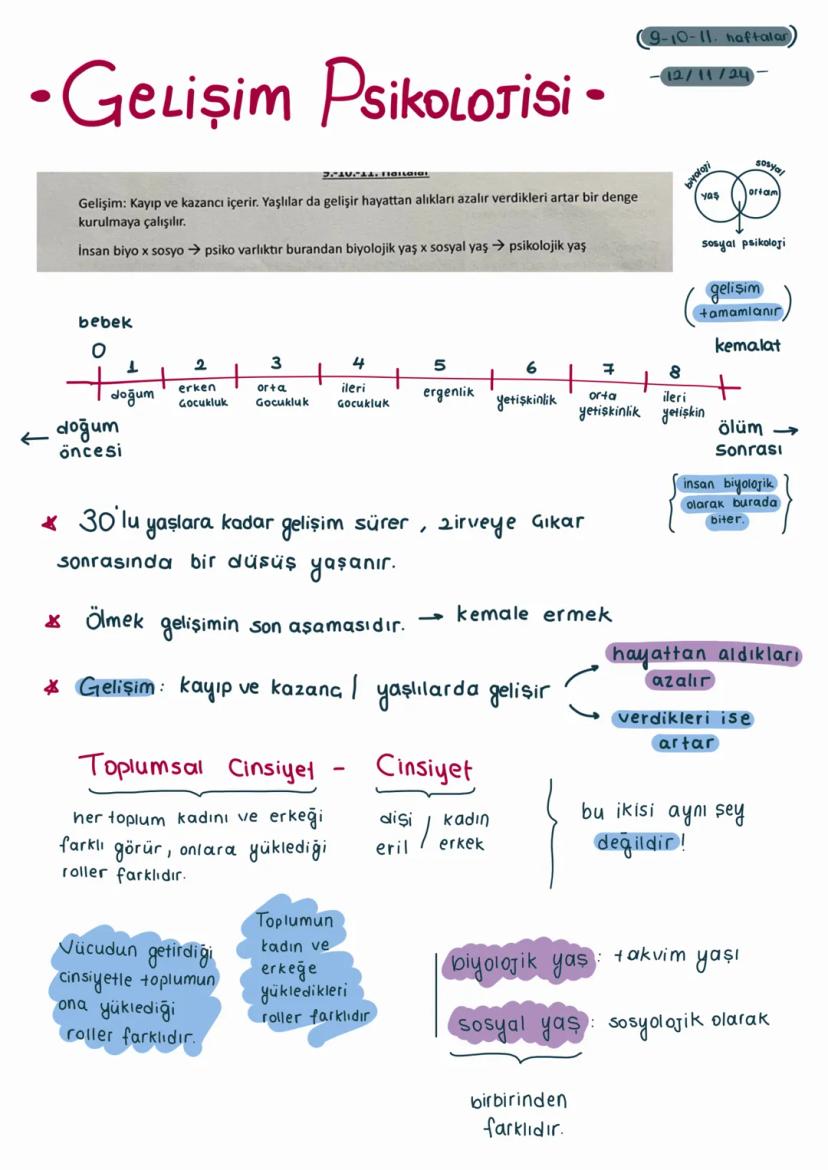 (9-10-11. haftalar)
- 12/11/24 -
• GELİŞİM PSİKOLOJİSİ •
9.-10.-11. Haftalar
Gelişim: Kayıp ve kazancı içerir. Yaşlılar da gelişir hayattan alıkları azalır verdikleri artar bir denge
kurulmaya çalışılır.
İnsan biyo x sosyo → psiko varlıktır burandan biyolojik yaş x sosyal yaş → psikolojik yaş
biyoloji
sosyal
yaş
ortam
sosyal psikoloji
(gelişim
tamamlanır)
kemalat
bebek
0
1 2 3 4 5 6 7 8
doğum
erken
çocukluk
orta
çocukluk
ileri
çocukluk
ergenlik
yetişkinlik
orta
yetişkinlik
ileri
yetişkin
← doğum
öncesi
ölüm →
sonrası
{insan biyolojik
olarak burada
biter.}
* 30'lu yaşlara kadar gelişim sürer , zirveye çıkar
sonrasında bir düşüş yaşanır.
* Ölmek gelişimin son aşamasıdır. → kemale ermek
* Gelişim : kayıp ve kazanç / yaşlılarda gelişir
hayattan aldıkları
azalır
verdikleri ise
artar
Toplumsal Cinsiyet - Cinsiyet
her toplum kadını ve erkeği
farklı görür, onlara yüklediği
roller farklıdır.
dişi / kadın
eril / erkek
bu ikisi aynı şey
değildir!
Vücudun getirdiği
cinsiyetle toplumun
ona yüklediği
roller farklıdır.
Toplumun
kadın ve
erkeğe
yükledikleri
roller farklıdır
biyolojik yaş : takvim yaşı
sosyal yaş : sosyolojik olarak
birbirinden
farklıdır.